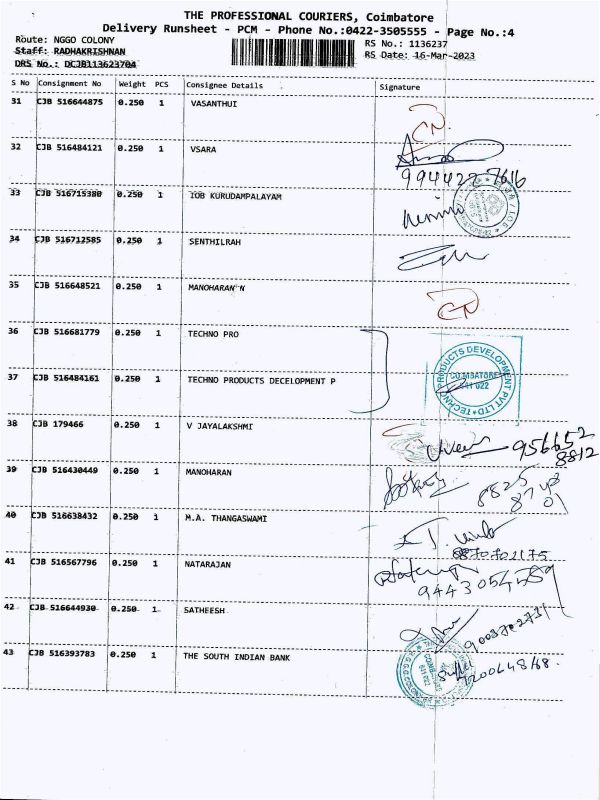 THE PROFESSIONAL COURIERS, Coimbatore
Delivery Runsheet - PCM - Phone No.:0422-3505555 - Page No.:4
Route: NGGO COLONY
RS No.: 1136237
Staff: RADHAKRISHNAN
RS Date: 16-Mar-2023
DRS No.: DCJB113623704
S No Consignment No Weight PCS Consignee Details Signature
31 CJB 516644875 0.250 1 VASANTHUI
CN
32 CJB 516484121 0.250 1 VSARA
994422 7616
33 CJB 516715380 0.250 1 IOB KURUDAMPALAYAM
34 CJB 516712585 0.250 1 SENTHILRAH
35 CJB 516648521 0.250 1 MANOHARAN N
CN
36 CJB 516681779 0.250 1 TECHNO PRO
37 CJB 516484161 0.250 1 TECHNO PRODUCTS DECELOPMENT P
TECHNO PRODUCTS DEVELOPMENT PVT LTD
COIMBATORE
641 022
38 CJB 179466 0.250 1 V JAYALAKSHMI
956652
8812
39 CJB 516430449 0.250 1 MANOHARAN
40 CJB 516638432 0.250 1 M.A. THANGASWAMI
41 CJB 516567796 0.250 1 NATARAJAN
42 CJB 516644930 0.250 1 SATHEESH
43 CJB 516393783 0.250 1 THE SOUTH INDIAN BANK